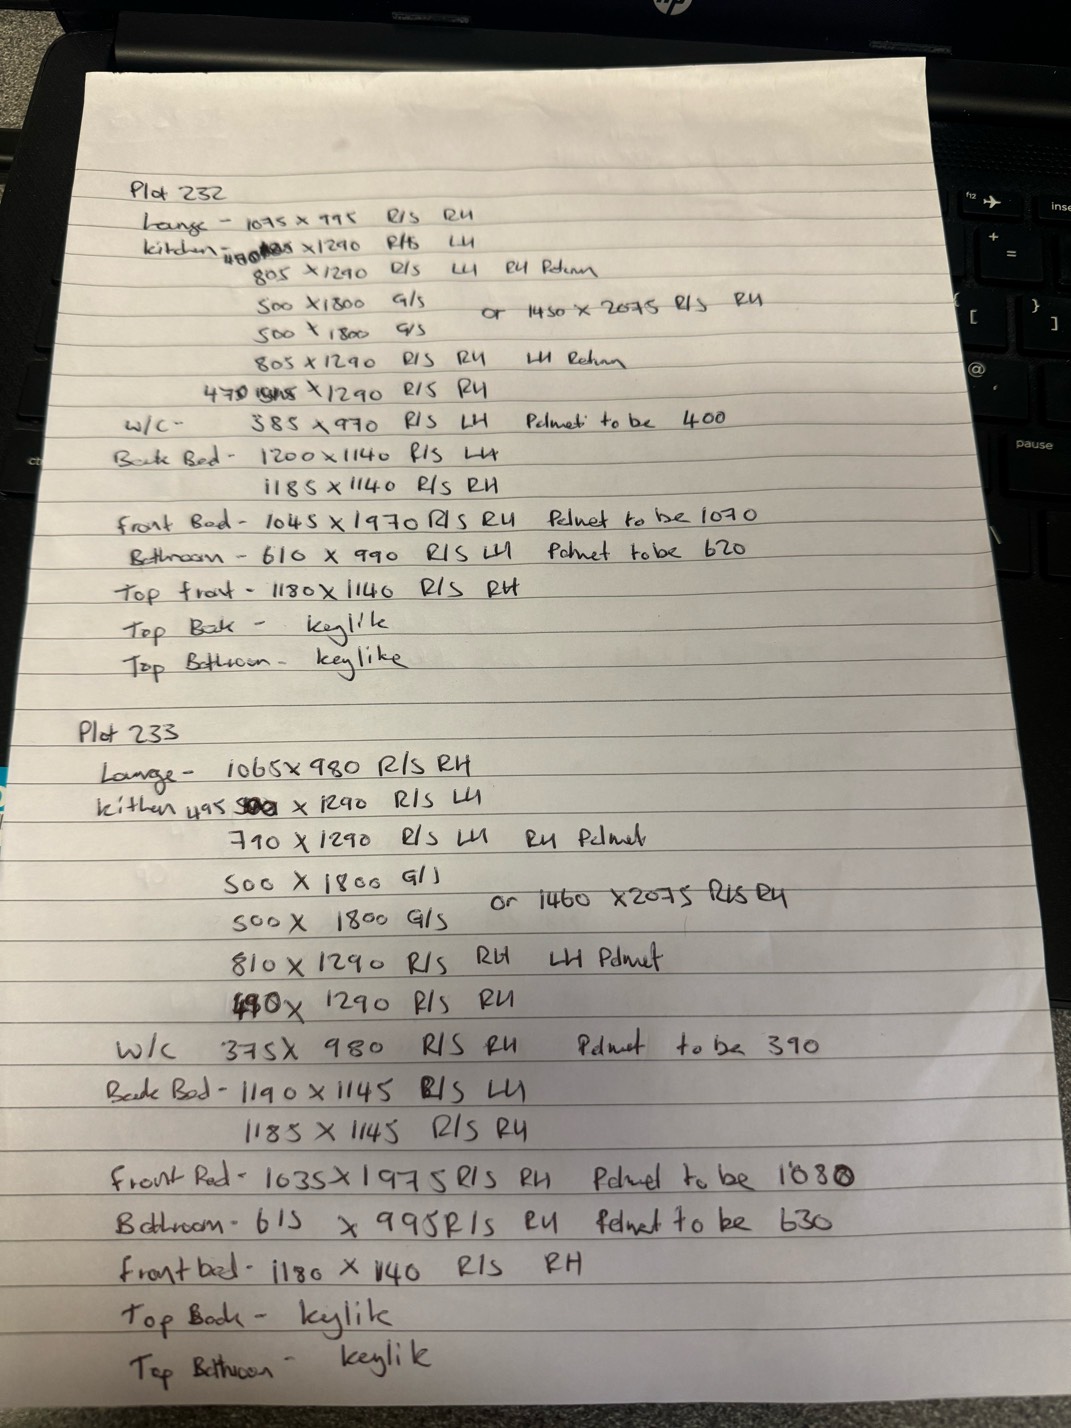 Plot 232
Lounge - 1075 x 995 R/S RH
Kitchen - 480 x 1290 R/S LH
805 x 1290 R/S LH RH Return
500 x 1800 G/S
or 1450 x 2075 R/S RH
500 x 1800 G/S
805 x 1290 R/S RH LH Return
470 x 1290 R/S RH
W/C - 385 x 970 R/S LH Pelmet to be 400
Back Bed - 1200 x 1140 R/S LH
1185 x 1140 R/S RH
Front Bed - 1045 x 1970 R/S RH Pelmet to be 1070
Bathroom - 610 x 990 R/S LH Pelmet to be 620
Top front - 1180 x 1140 R/S RH
Top Back - keylik
Top Bathroom - keylike
Plot 233
Lounge - 1065 x 980 R/S RH
kithen 495 x 1290 R/S LH
790 x 1290 R/S LH RH Pelmet
500 x 1800 G/S
or 1460 x 2075 R/S RH
500 x 1800 G/S
810 x 1290 R/S RH LH Pelmet
490 x 1290 R/S RH
W/C 375 x 980 R/S RH Pelmet to be 390
Back Bed - 1190 x 1145 R/S LH
1185 x 1145 R/S RH
Front Bed - 1035 x 1975 R/S RH Pelmet to be 1080
Bathroom - 615 x 995 R/S RH Pelmet to be 630
Front bed - 1180 x 1140 R/S RH
Top Back - keylik
Top Bathroom - keylik
hp
f12
inse
+
=
{
[
}
]
@
pause